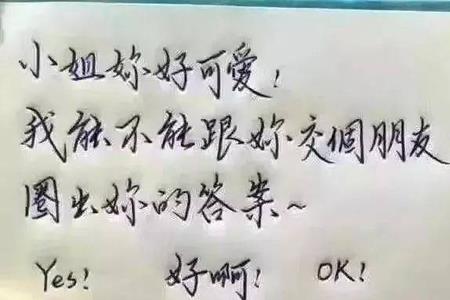 小姐妳好可爱！
我能不能跟妳交個朋友
圈出妳的答案~
Yes! 好啊! OK!